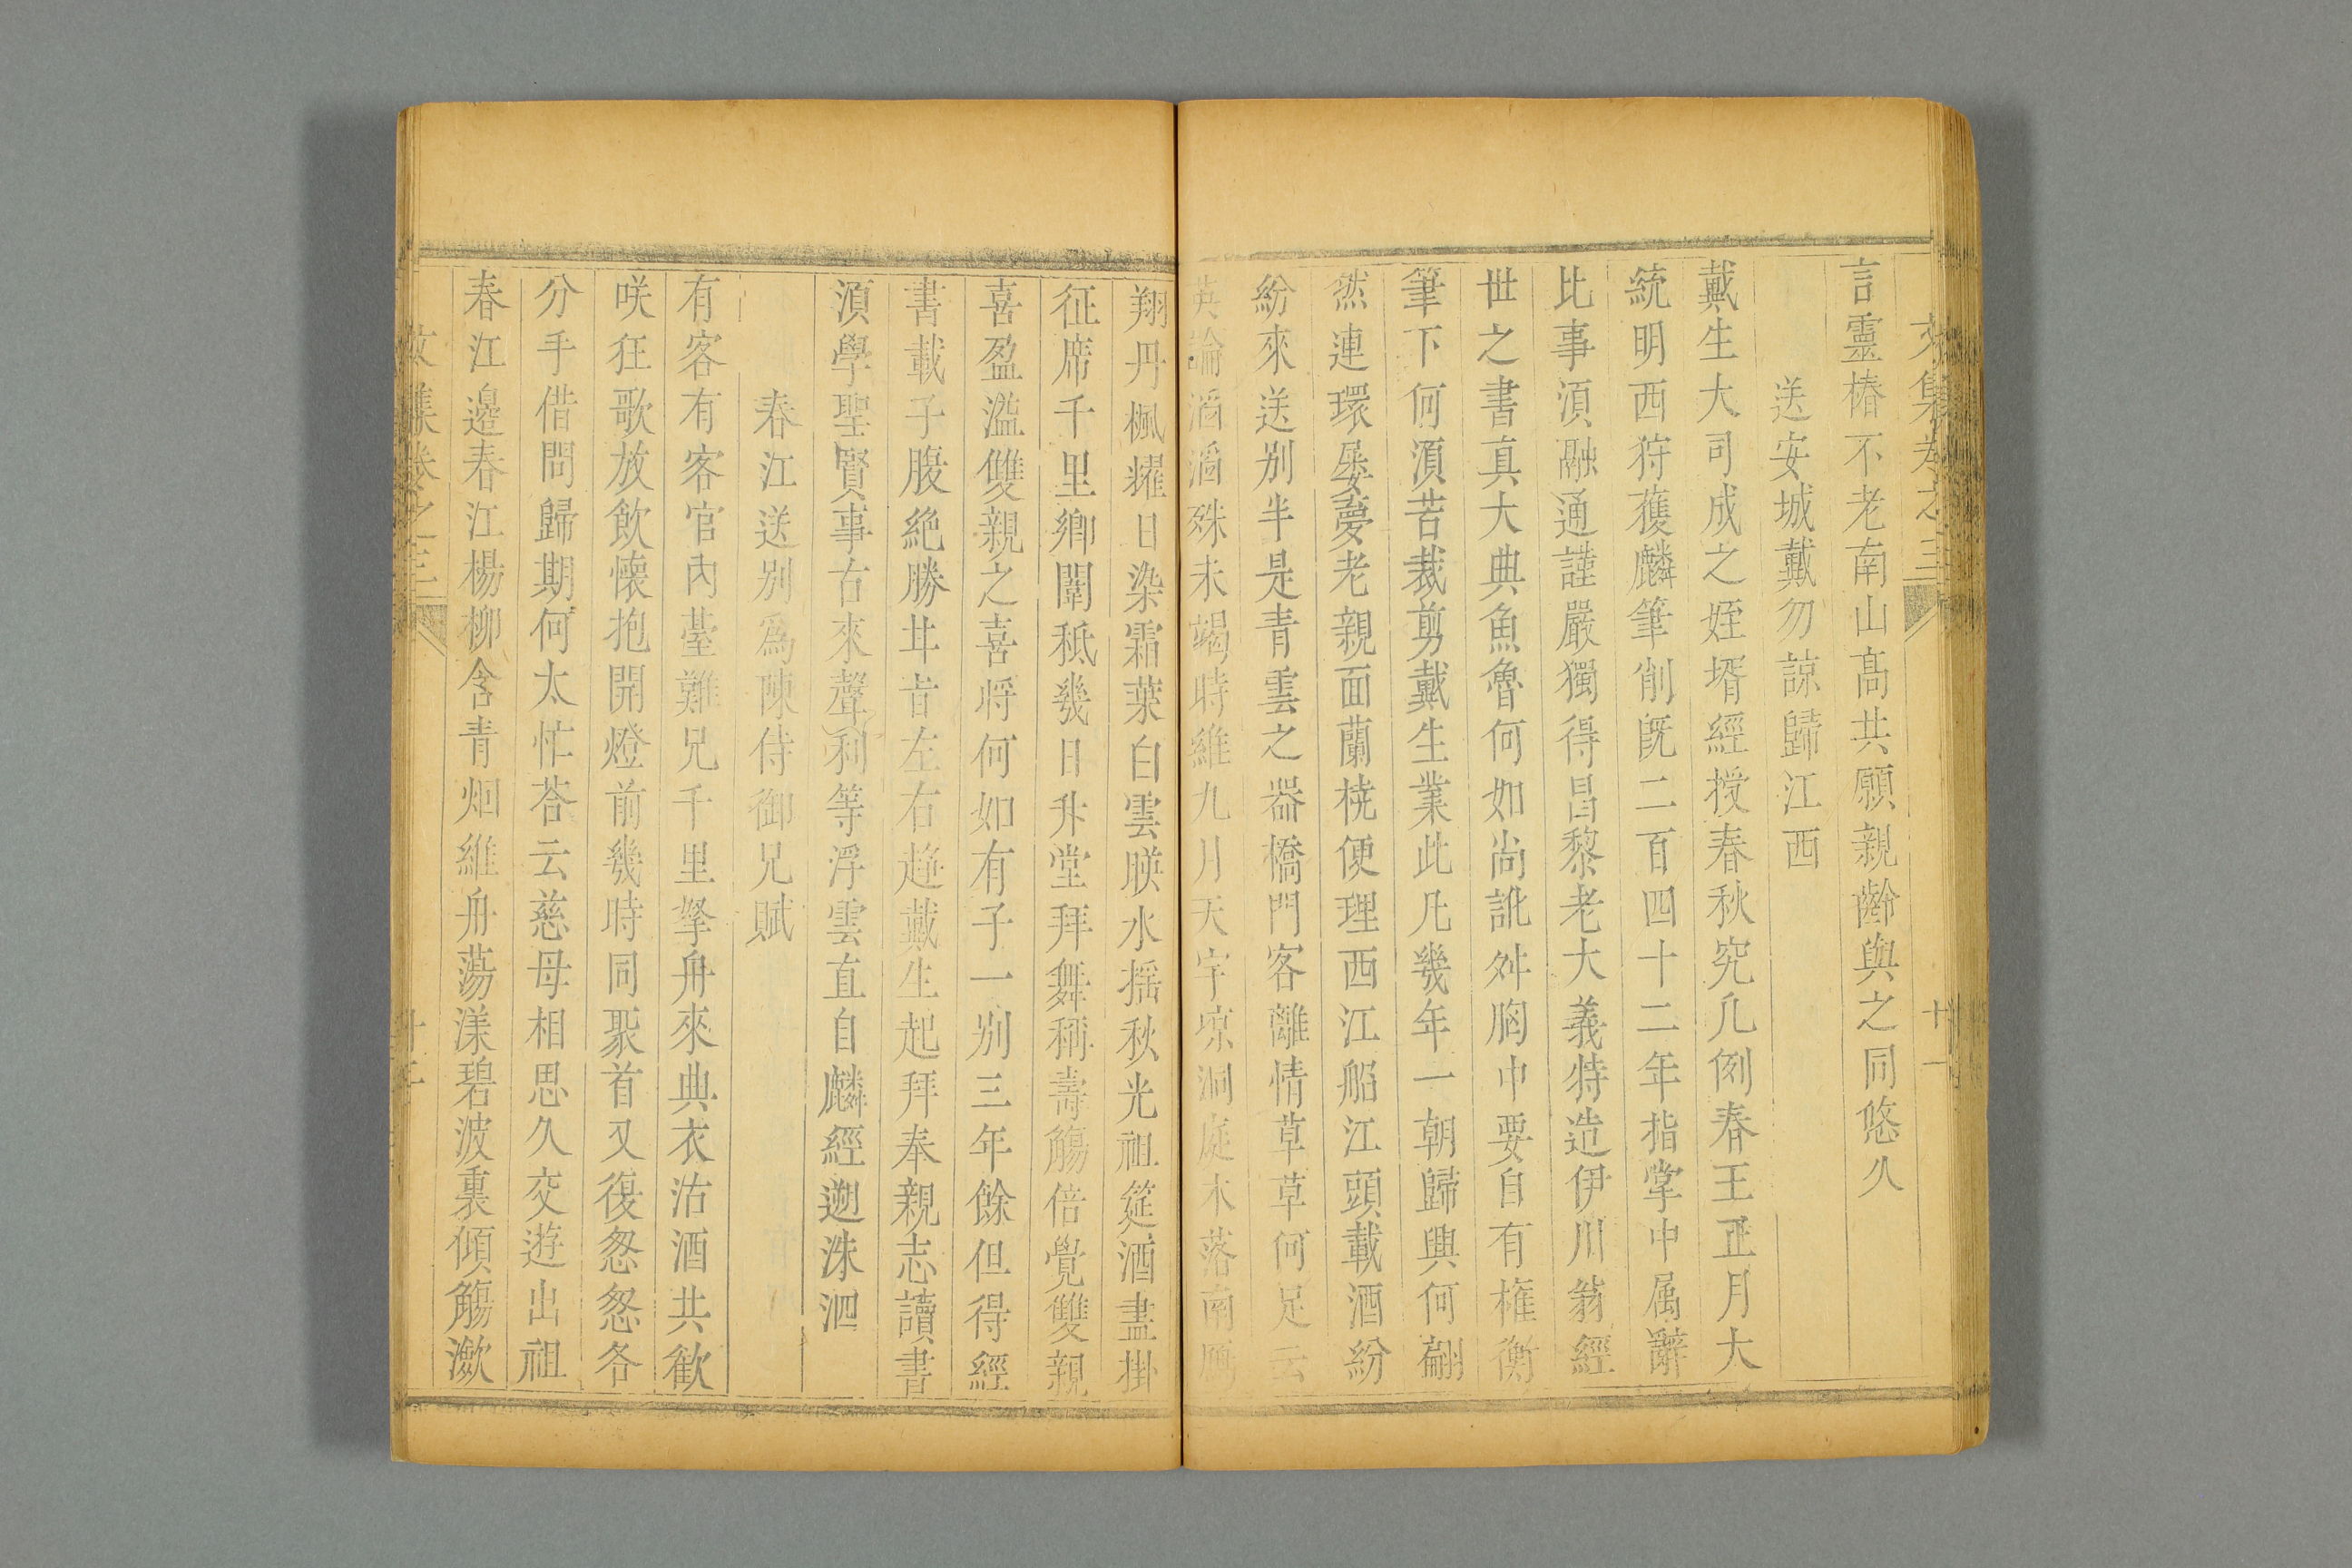 文集卷之三 十一
言靈椿不老南山髙共願親齡與之同悠久
送安城戴勿諒歸江西
戴生大司成之姪壻經授春秋究凡例春王正月大
統明西狩獲麟筆削旣二百四十二年指掌中属辭
比事湏融通謹嚴獨得昌黎老大義特造伊川翁經
世之書真大典魚魯何如尚訛舛胸中要自有権衡
筆下何湏苦裁剪戴生業此凡幾年一朝歸興何翩
然連環屡夢老親面蘭橈便理西江船江頭載酒紛
紛來送别半是青雲之器橋門客離情草草何足云
英論滔滔殊未竭時維九月天宇凉洞庭木落南鴈
翔丹楓燿日染霜葉白雲暎水揺秋光祖筵酒盡掛
征席千里鄉闈秪幾日升堂拜舞稱壽觴倍覺雙親
喜盈溢雙親之喜将何如有子一别三年餘但得經
書載子腹絶勝甘旨左右趨戴生起拜奉親志讀書
湏學聖賢事古來聲利等浮雲直自麟經遡洙泗
春江送别為陳侍御兄賦
有客有客官内臺難兄千里拏舟來典衣沽酒共歡
咲狂歌放飲懐抱開燈前幾時同聚首又復怱怱各
分手借問歸期何太忙荅云慈母相思久交遊出祖
春江邉春江楊柳含青烟維舟蕩漾碧波裏傾觴瀲
文集卷之三 十二